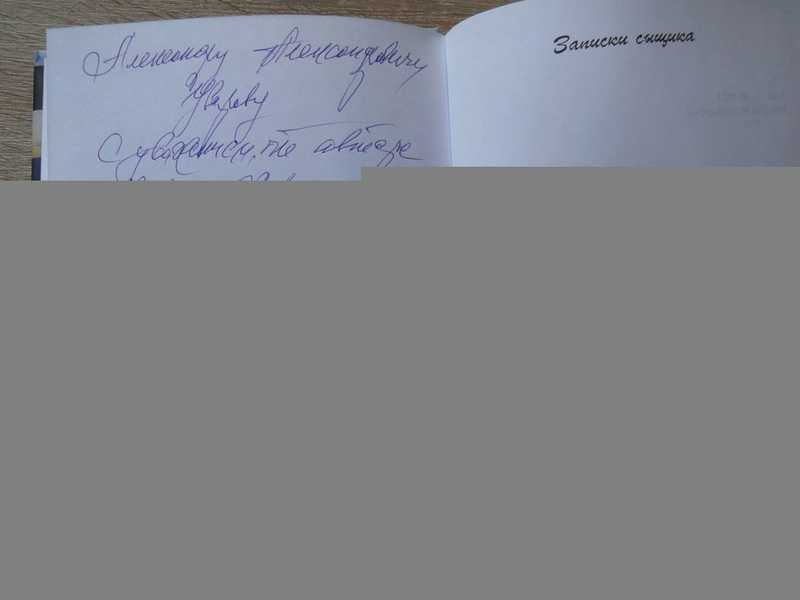 Александру Александровичу
Уварову
С уважением, от автора
Записки сыщика